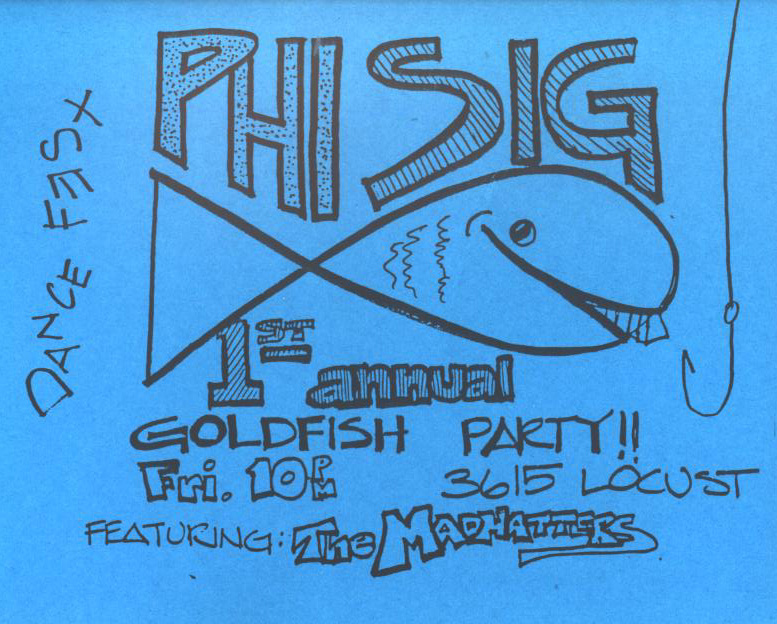 PHI SIG
DANCE FEST
1ST annual
GOLDFISH PARTY!!
Fri. 10PM 3615 LOCUST
FEATURING: The MADHATTERS